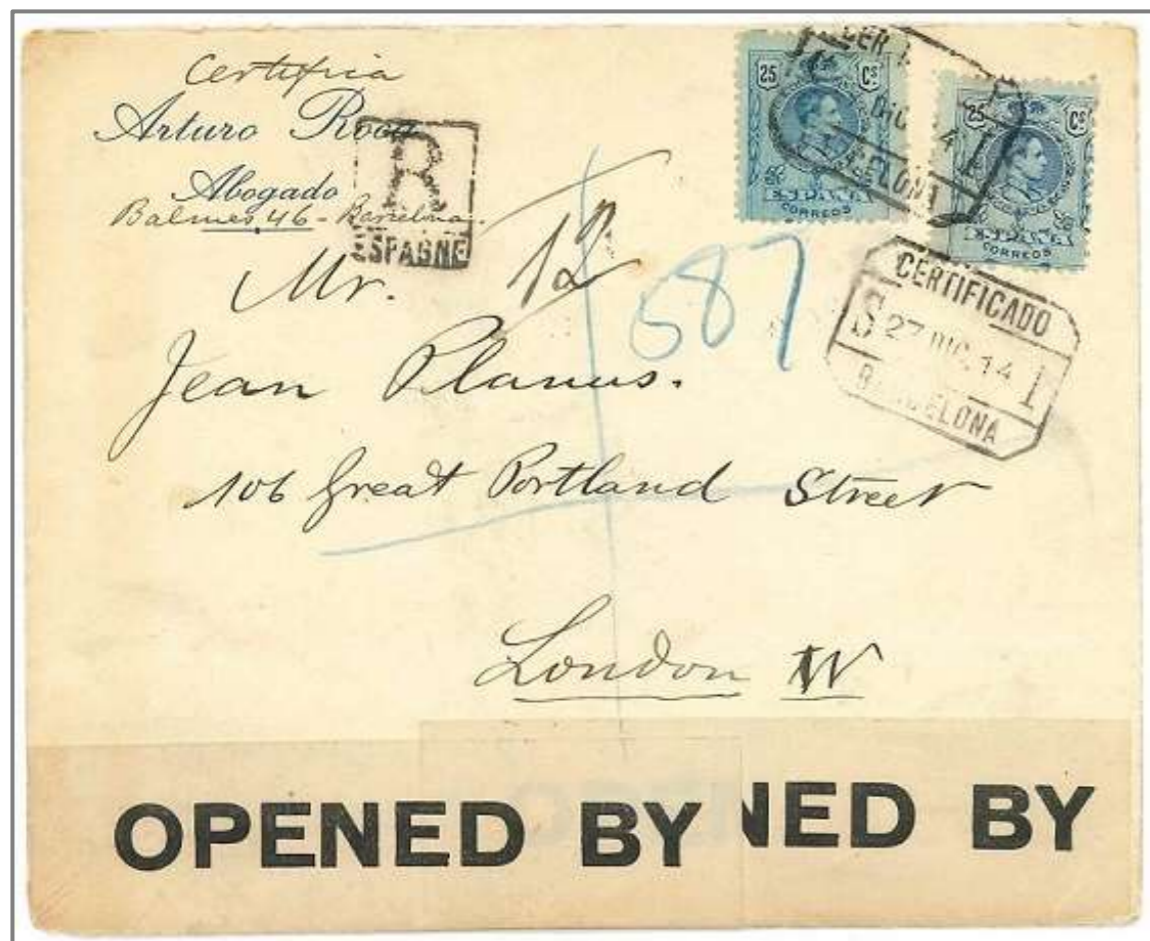 Certifica
Arturo
Abogado
Balmes, 46 - Barcelona.
R
ESPAGNE
25 Cs
CORREOS
25 Cs
CORREOS
CERTIFICADO
S 27 DIC. 14 1
BARCELONA
587
Mr.
Jean Planus.
106 Great Portland Street
London W
OPENED BY NED BY